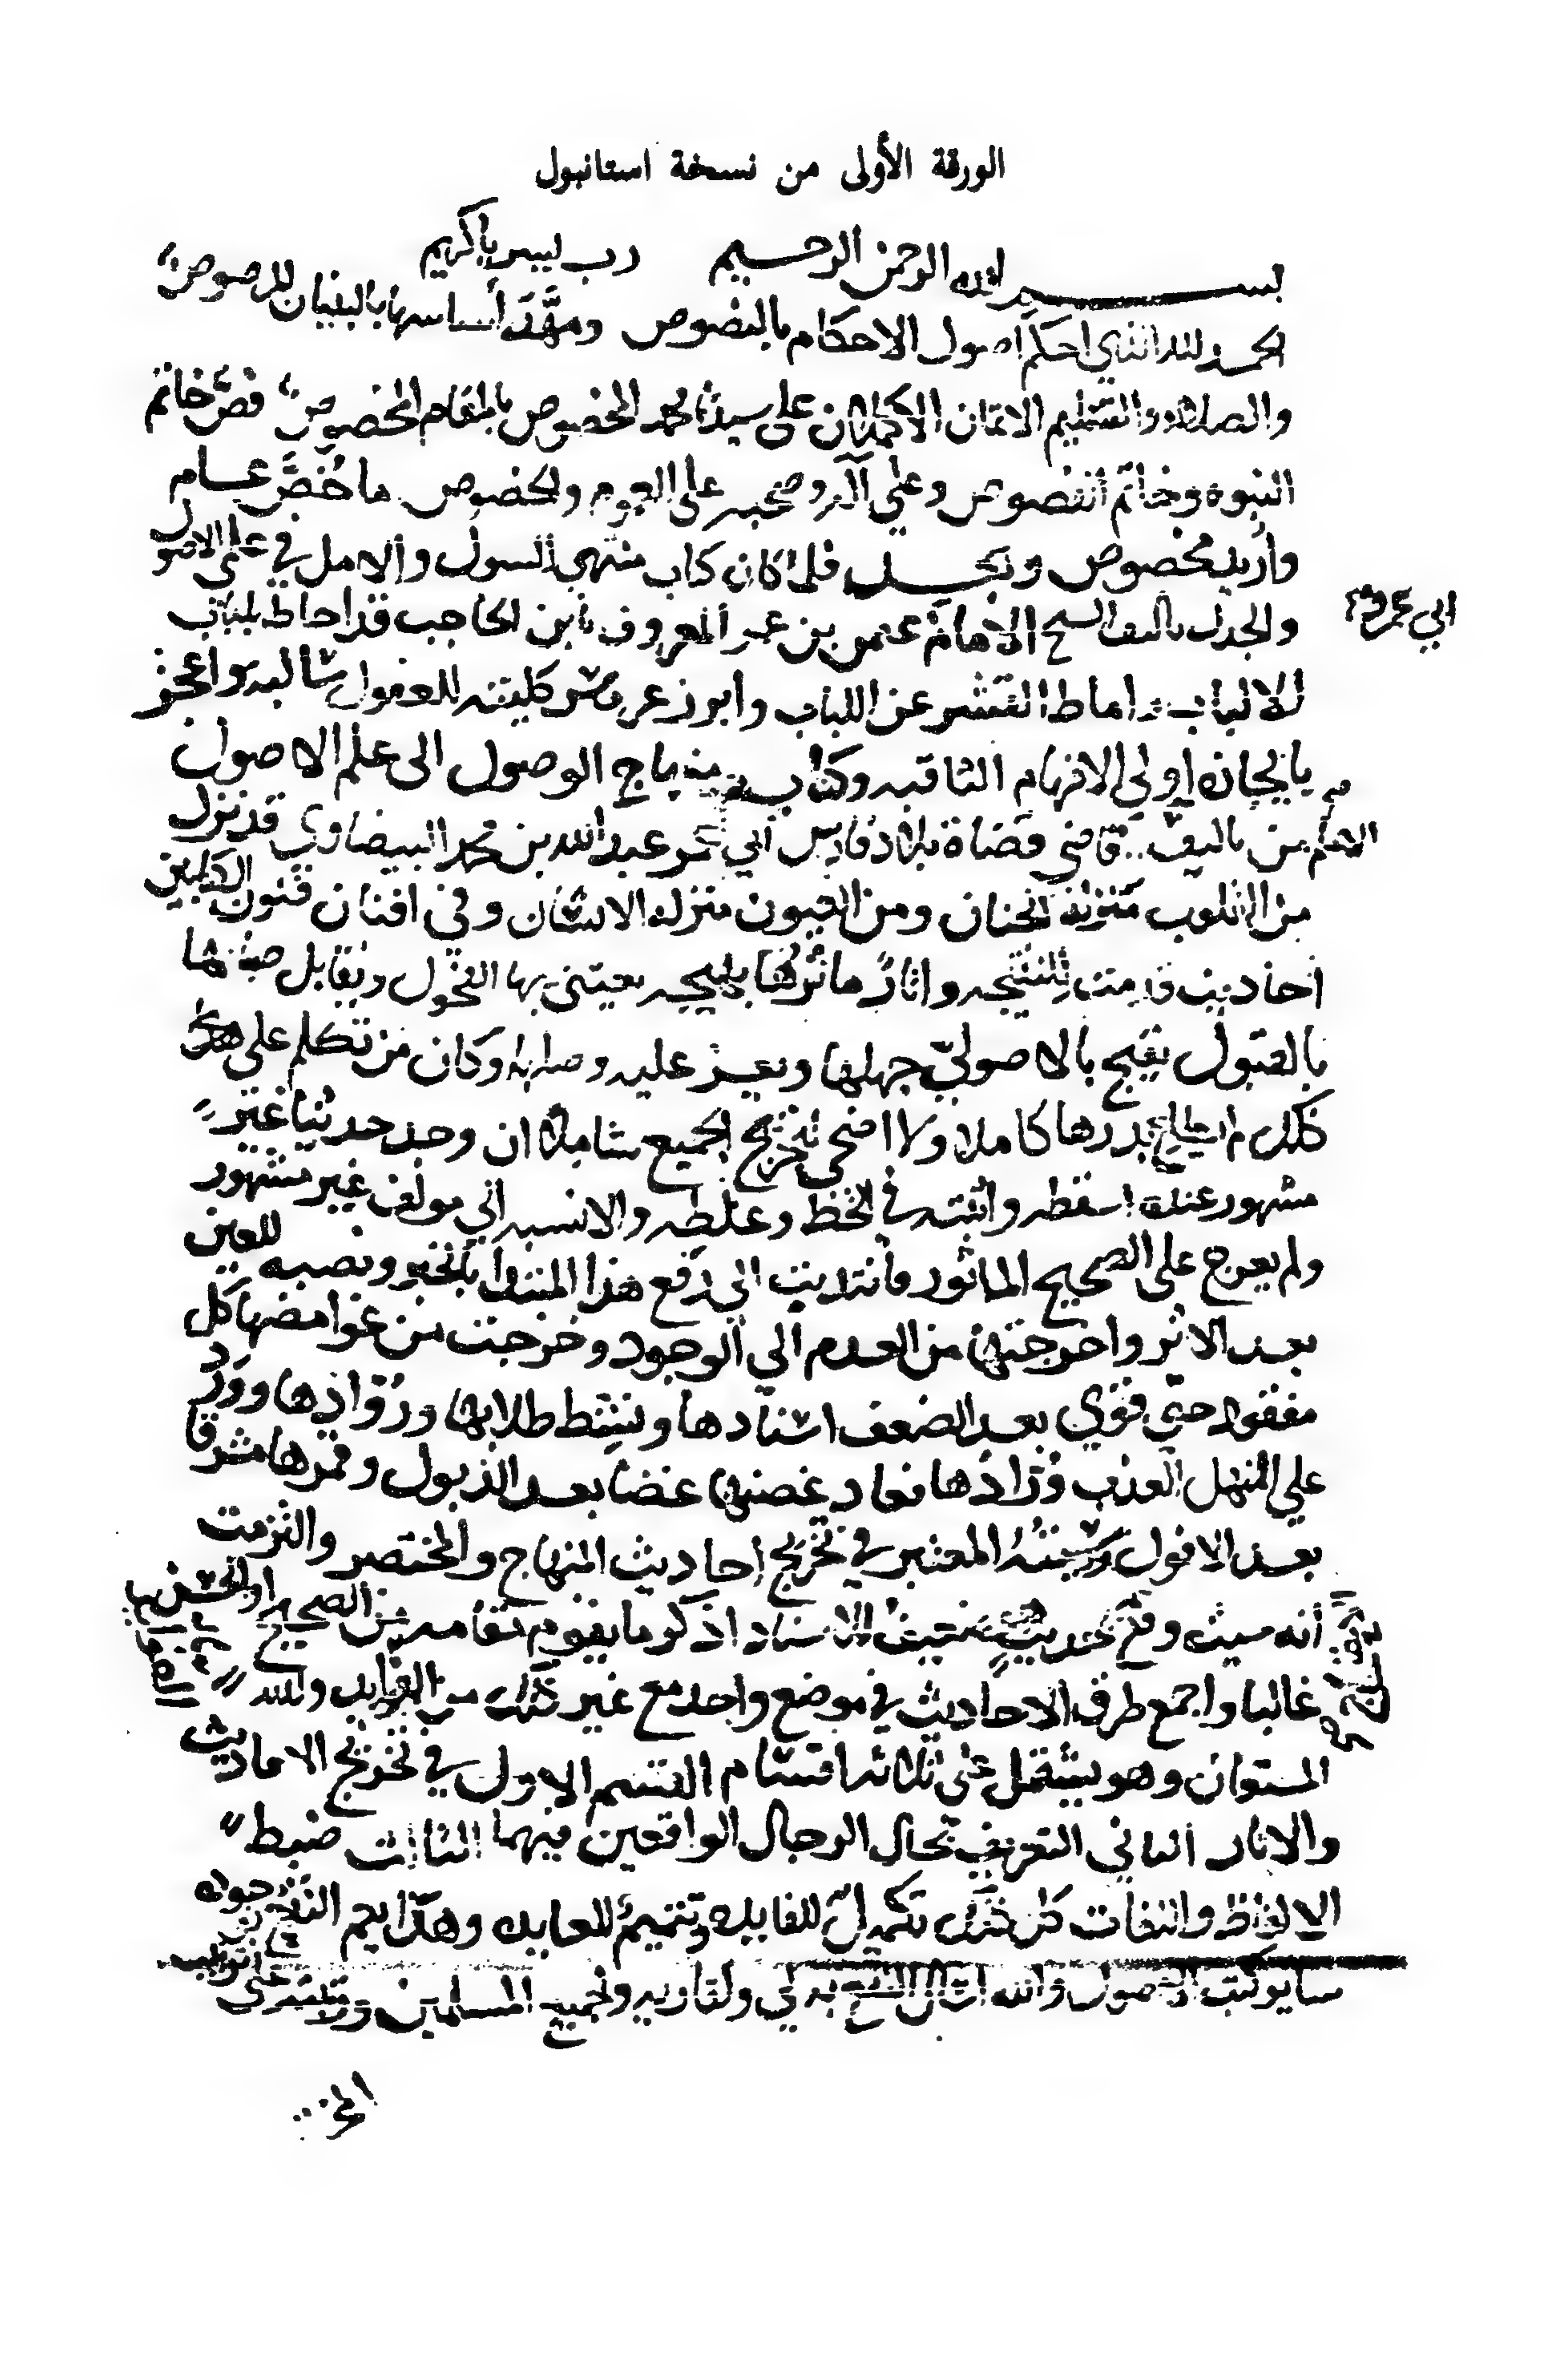 الورقة الأولى من نسخة استانبول
بسم الله الرحمن الرحيم رب يسر يا كريم
الحمد لله الذي احكم اصول الاحكام بالنصوص ومهَّدَ أساسها بالبنيان المرصوص
والصلاة والتسليم الاتمان الاكملان على سيدنا محمد المخصوص بالمقام المخصوص فصّ خاتم
النبوة وخاتم الفصوص وعلى آله وصحبه على العموم والخصوص ما خُصَّ عام
وأريد مخصوص وبعد فلما كان كتاب منتهى السول والامل في علمي الاصول
والجدل تاليف الشيخ الإمام عثمن بن عمر المعروف بابن الحاجب قد احاط بلباب
ابي عمرو
الالباب اماط القشر عن اللباب وابرز عرائس كليته للعقول سالبه واعجز
بايجازه اولي الافهام الثاقبه وكتاب منهاج الوصول الى علم الاصول
الامام من تاليف قاضي قضاة بلاد فارس أبي عمر عبد الله بن محمد البيضاوي قد نزل
من القلوب منزلة الجنان ومن العيون منزلة الانسان وفي افنان فنون الكتابين
احاديث قدمت للنتيجه واثارٌ ماثرها بهيجه يعتني بها الفحول ويقابل
بالقبول يقبح بالاصولي جهلها ويعز عليه وكان من تكلم على
ذلك لم يطلع بدرها كاملا ولا اضحى تخريج الجميع شاملا ان وجد حديثا غير
مشهور عنده اسقطه واثبته في الخط وغلطه والا نسبه الي مولف غير مشهور
ولم يعرج على الصحيح الماثور فانتدبت الى رفع هذا المبتدا بالخبر ونصبه للعين
بعد الاثر واخرجتها من العدم الي الوجود وخرجت من غوامضها كل
مفقود حتى قوي بعد الضعف اسنادها ونشط طلابها ورُوّادها وورد
على المنهل العذب ورّادها فعاد غصنها غضا بعد الذبول وقمرها مشرقا
بعد الافول وسميته المعتبر في تخريج احاديث المنهاج والمختصر والتزمت
أنه حيث وقع حديث ضعيف الاسناد اذكر ما يقوم مقامه من الصحيح او الحسن
غالبا واجمع طرق الاحاديث في موضع واحد مع غير ذلك من الفوايد والله
المستعان وهو يشتمل على ثلاثة اقسام القسم الاول في تخريج الاحاديث
والاثار الثاني التعريف بحال الرجال الواقعين فيهما الثالث ضبط
الالفاظ واللغات كل ذلك تكميل للفايده وتتميم للعايده وهذا يعم النفع
ساير كتب الاصول والله اسال النفع به لي ولقاريه ولجميع المسلمين
الخ